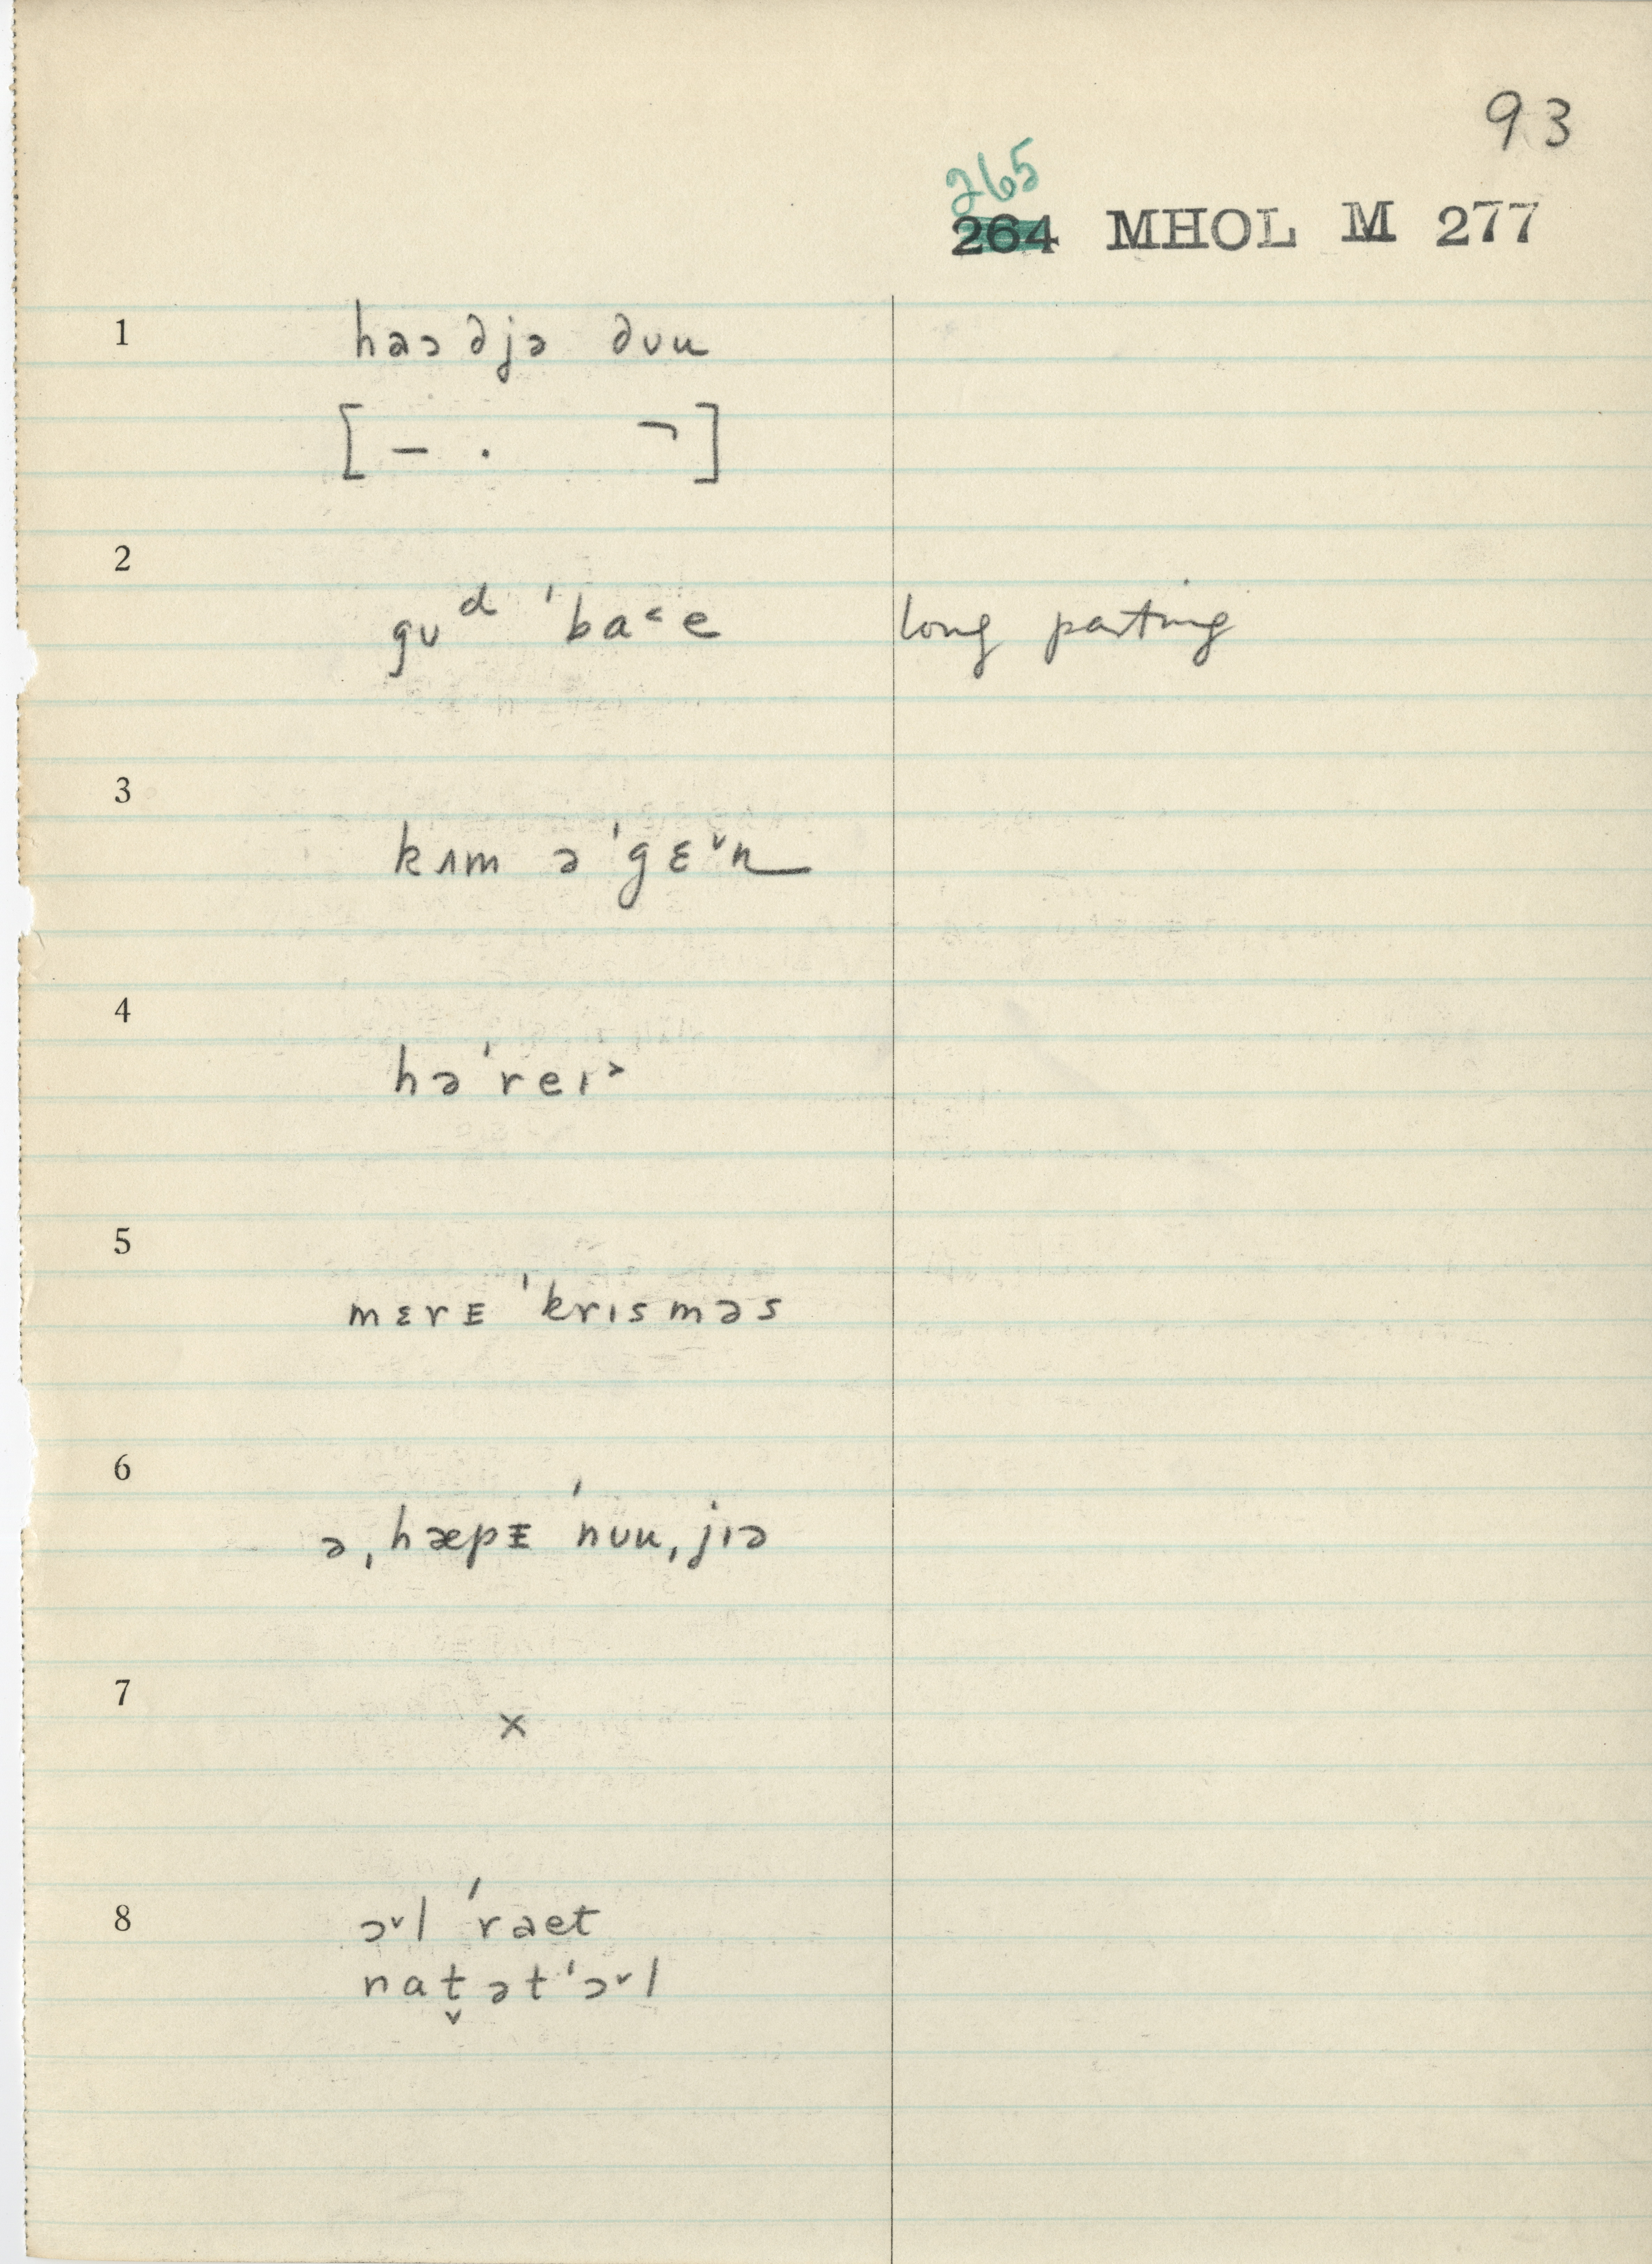 93
265
264 MHOL M 277
1 haɔ ∂jə ∂ʊu
[ – . ¬ ]
2 gʊᵈ ˈba˂e long parting
3 kʌm əˈgɛ˅n
4 həˈreɪ˃
5 mɛrᴇ ˈkrɪsməs
6 ə ˌhæpᴇ ˈnʊuˌjɪə
7 ×
8 ɔ˅l ˈraet
nat̬ətˈɔ˅l